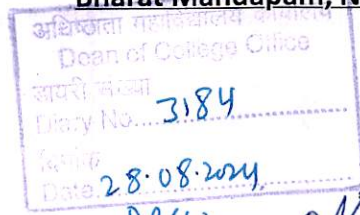 Bharat Mandapam, N
अधिष्ठाता महाविद्यालय कार्यालय
Dean of College Office
डायरी संख्या
Diary No.....3184
दिनांक
Date.28.08.2024